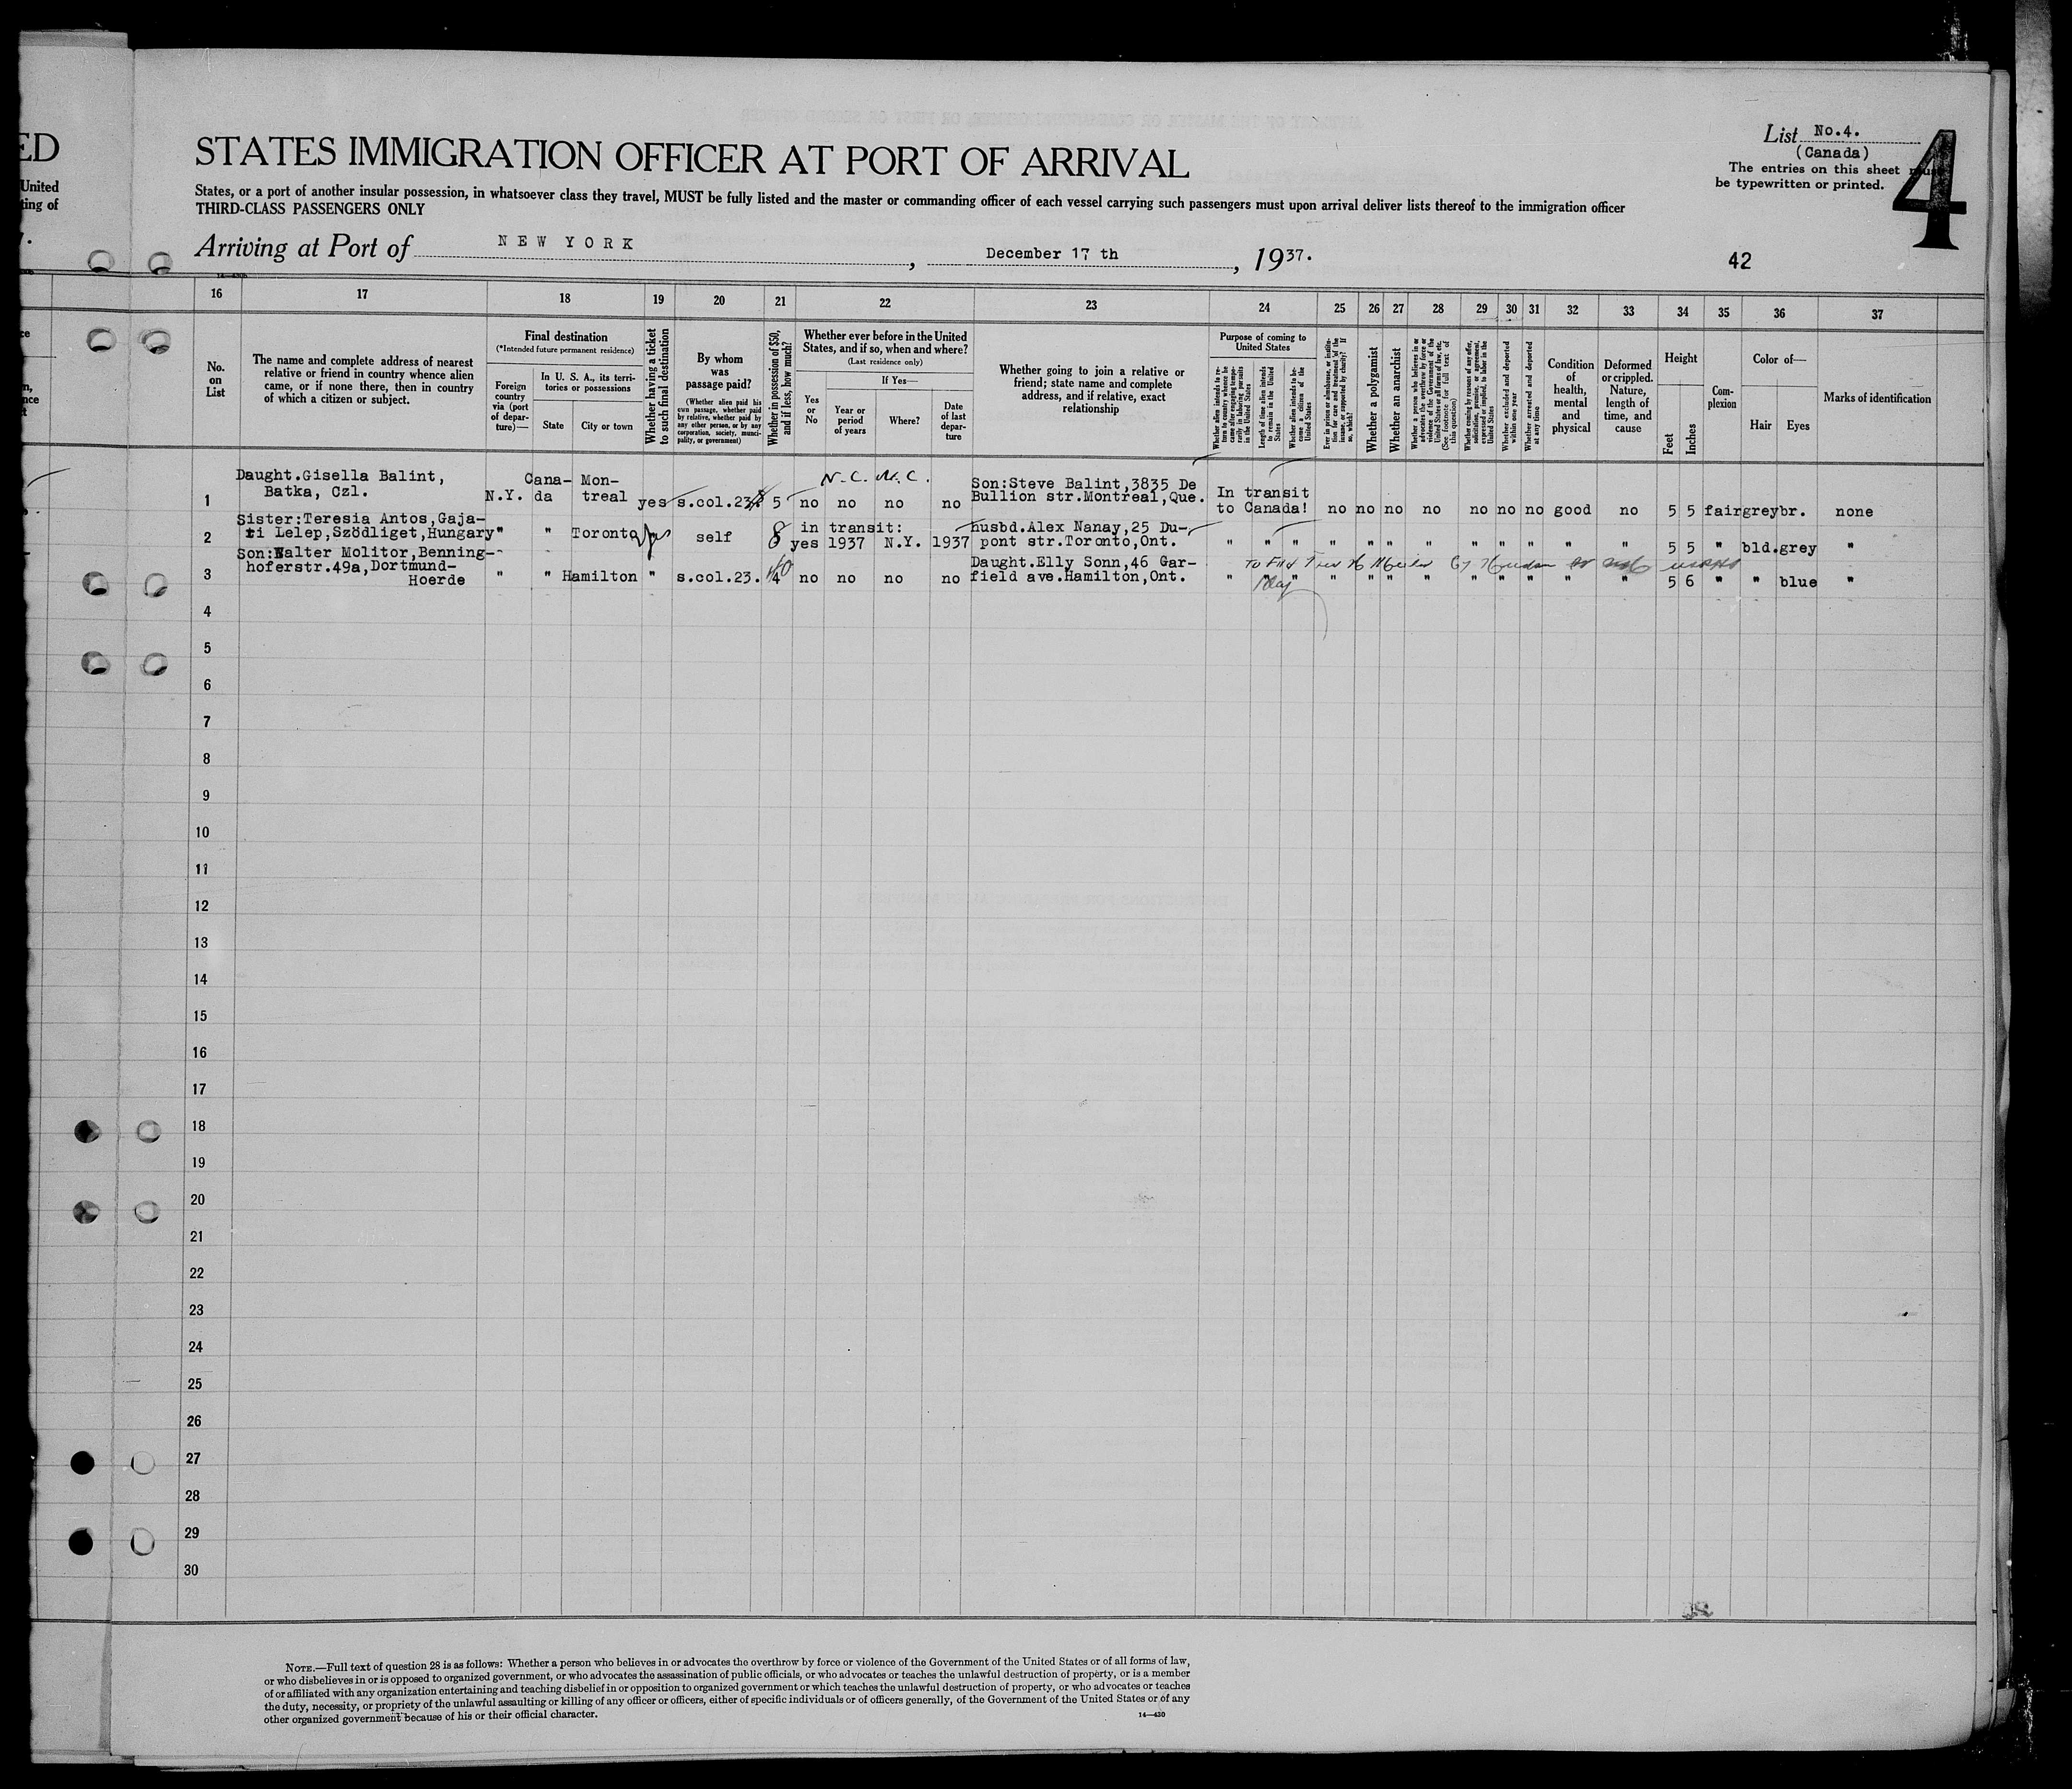 ED
United
ing of
STATES IMMIGRATION OFFICER AT PORT OF ARRIVAL
List No.4.
(Canada)
The entries on this sheet must
be typewritten or printed.
4
States, or a port of another insular possession, in whatsoever class they travel, MUST be fully listed and the master or commanding officer of each vessel carrying such passengers must upon arrival deliver lists thereof to the immigration officer
THIRD-CLASS PASSENGERS ONLY
Arriving at Port of NEW YORK, December 17 th, 1937.
42
16 17 18 19 20 21 22 23 24 25 26 27 28 29 30 31 32 33 34 35 36 37
No.
on
List
The name and complete address of nearest
relative or friend in country whence alien
came, or if none there, then in country
of which a citizen or subject.
Final destination
(*Intended future permanent residence)
Foreign
country
via (port
of depar-
ture)—
In U. S. A., its terri-
tories or possessions
State
City or town
Whether having a ticket
to such final destination
By whom
was
passage paid?
(Whether alien paid his
own passage, whether paid
by relative, whether paid by
any other person, or by any
corporation, society, munici-
pality, or government)
Whether in possession of $50,
and if less, how much?
Whether ever before in the United
States, and if so, when and where?
(Last residence only)
Yes
or
No
If Yes—
Year or
period
of years
Where?
Date
of last
depar-
ture
Whether going to join a relative or
friend; state name and complete
address, and if relative, exact
relationship
Purpose of coming to
United States
Whether alien intends to re-
turn to country whence he
came after engaging tempo-
rarily in laboring pursuits
in the United States
Length of time alien intends
to remain in the United
States
Whether alien intends to be-
come a citizen of the
United States
Ever in prison or almshouse, or institu-
tion for care and treatment of the
insane, or supported by charity? If
so, which?
Whether a polygamist
Whether an anarchist
Whether a person who believes in or
advocates the overthrow by force or
violence of the Government of the
United States or all forms of law, etc.
(See footnote for full text of
this question)
Whether coming by reasons of any offer,
solicitation, promise, or agreement,
expressed or implied, to labor in the
United States
Whether excluded and deported
within one year
Whether arrested and deported
at any time
Condition
of
health,
mental
and
physical
Deformed
or crippled.
Nature,
length of
time, and
cause
Height
Feet
Inches
Com-
plexion
Color of—
Hair
Eyes
Marks of identification
N.C. N.C.
1 Daught.Gisella Balint,
Batka, Czl.
N.Y. Cana-
da
Mon-
treal
yes s.col.23. 5 no no no no
Son:Steve Balint,3835 De
Bullion str.Montreal,Que.
In transit
to Canada!
no no no no no no no good no 5 5 fair grey br. none
2 Sister:Teresia Antos,Gaja-
ti Lelep,Szödliget,Hungary
" " Toronto yes self 8
in transit:
yes 1937 N.Y. 1937
husbd.Alex Nanay,25 Du-
pont str.Toronto,Ont.
" " " " " " " " " " " " 5 5 " bld. grey "
3 Son:Walter Molitor,Benning-
hoferstr.49a,Dortmund-
Hoerde
" " Hamilton " s.col.23. 4 no no no no
Daught.Elly Sonn,46 Gar-
field ave.Hamilton,Ont.
" " " " " " " " " " " 5 6 " " blue "
4
5
6
7
8
9
10
11
12
13
14
15
16
17
18
19
20
21
22
23
24
25
26
27
28
29
30
NOTE.—Full text of question 28 is as follows: Whether a person who believes in or advocates the overthrow by force or violence of the Government of the United States or of all forms of law,
or who disbelieves in or is opposed to organized government, or who advocates the assassination of public officials, or who advocates or teaches the unlawful destruction of property, or is a member
of or affiliated with any organization entertaining and teaching disbelief in or opposition to organized government or which teaches the unlawful destruction of property, or who advocates or teaches
the duty, necessity, or propriety of the unlawful assaulting or killing of any officer or officers, either of specific individuals or of officers generally, of the Government of the United States or of any
other organized government because of his or their official character.
14—430